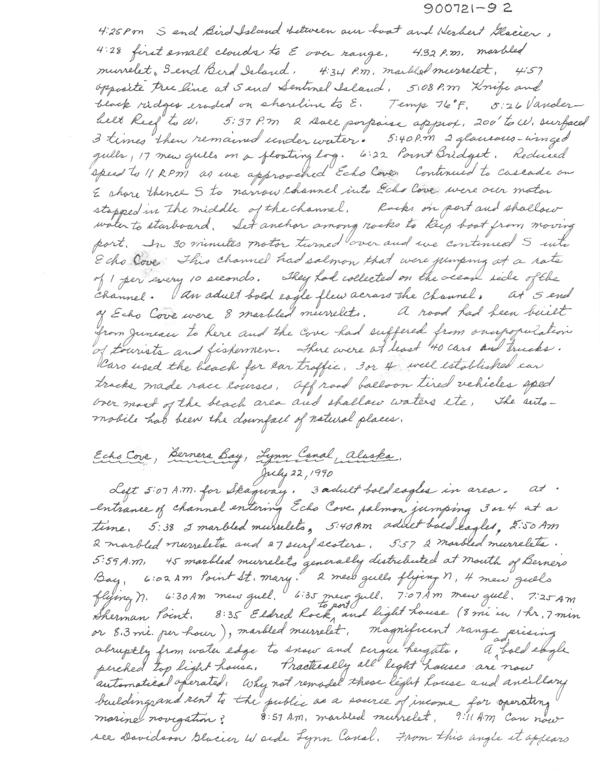 900721-92
4:25 P.m. S end Bird Island between our boat and Herbert Glacier,
4:28 first small clouds to E over range. 4:32 P.m. marbled
murrelet, S end Bird Island. 4:34 P.m. marbled murrelet. 4:57
opposite tree line at S end Sentinel Island. 5:08 P.M Knife and
black ridges eroded on shoreline to E. Temp 76°F. 5:26 Vander-
belt Reef to W. 5:37 P.M 2 Dall porpoise approx. 200' to W. surfaced
3 times then remained under water. 5:40 P.m 2 glaucous-winged
gulls, 17 mew gulls on a floating log. 6:22 Point Bridget. Reduced
speed to 11 RPM as we approached Echo Cove. Continued to cascade on
E shore thence S to narrow channel into Echo Cove were our motor
stopped in the middle of the channel. Rocks on port and shallow
water to starboard. Set anchor among rocks to keep boat from moving
port. In 30 minutes motor turned over and we continued S into
Echo Cove This channel had salmon that were jumping at a rate
of 1 per every 10 seconds. They had collected on the ocean side of the
channel. An adult bald eagle flew across the channel. At S end
of Echo Cove were 8 marbled murrelets. A road had been built
from Juneau to here and the cove had suffered from overpopulation
of tourists and fishermen. There were at least 40 cars and trucks.
Cars used the beach for car traffic. 3 or 4 well established car
tracks made race courses. Off road balloon tired vehicles sped
over most of the beach area and shallow waters etc. The auto-
mobile has been the downfall of natural places.
Echo Cove, Berners Bay, Lynn Canal, Alaska.
July 22, 1990
Left 5:07 A.M. for Skagway. 3 adult bald eagles in area. At
entrance of channel entering Echo Cove salmon jumping 3 or 4 at a
time. 5:38 2 marbled murrelets, 5:40 AM adult bald eagles, 5:50 AM
2 marbled murrelets and 27 surf scoters. 5:57 2 marbled murrelets.
5:59 A.M. 45 marbled murrelets generally distributed at mouth of Berners
Bay, 6:02 AM Point St. Mary. 2 mew gulls flying N, 4 mew gulls
flying N. 6:30 AM mew gull. 6:35 mew gull. 7:07 AM mew gull. 7:25 AM
Sherman Point. 8:35 Eldred Rock to port and light house (8 mi in 1 hr, 7 min
or 8.3 mi. per hour), marbled murrelet. magnificent range rising
abruptly from water edge to snow and cirque hergata. A ad bald eagle
perched top light house. Practically all light houses are now
automatical operated. Why not remodel these light house and ancillary
buildings and rent to the public as a source of income for operating
marine navegation? 8:57 AM. marbled murrelet. 9:11 AM Can now
see Davidson Glacier W side Lynn Canal. From this angle it appears